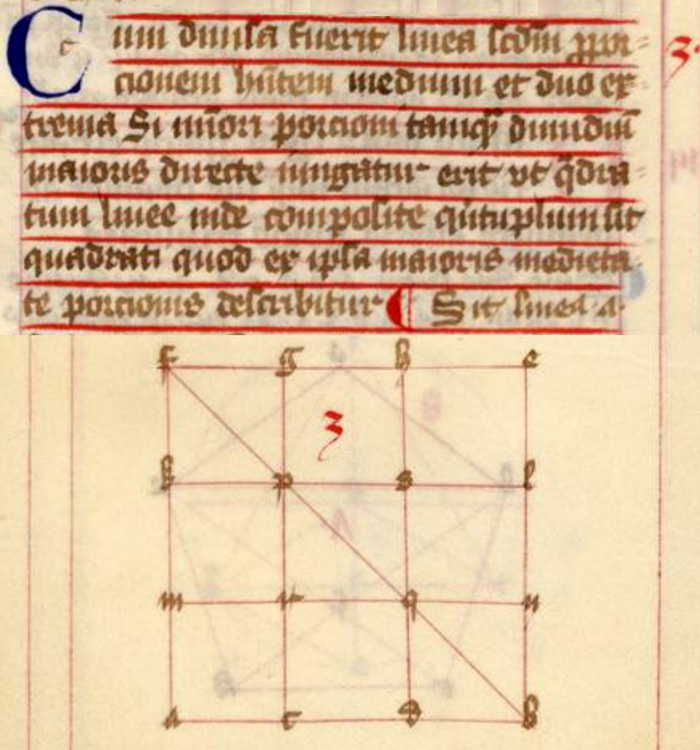 Cum diuisa fuerit linea scdm ppor= 3·
cionem hntem medium et duo ex=
trema Si minori porcioni tamq dimidiu
maioris directe iungatur erit vt qdra=
tum linee inde composite quituplum sit
quadrati quod ex ipsa maioris medieta
te porcionis describitur Sit linea ·a·
f g h e
3
k p s l
m r q n
a c d b